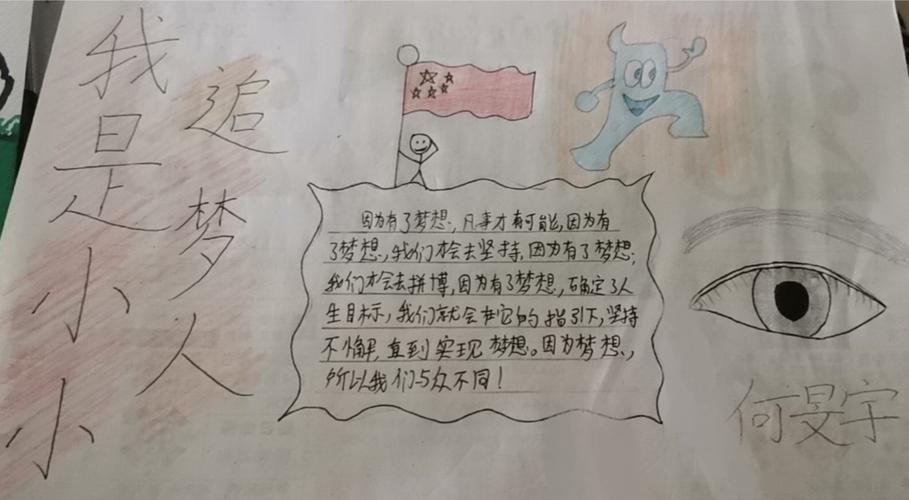 我是小小
追梦人
因为有了梦想,凡事才有可能,因为有
了梦想,我们才会去坚持,因为有了梦想,
我们才会去拼博,因为有了梦想,确定了人
生目标,我们就会在它的指引下,坚持
不懈,直到实现梦想。因为梦想,
所以我们与众不同!
何旻宇